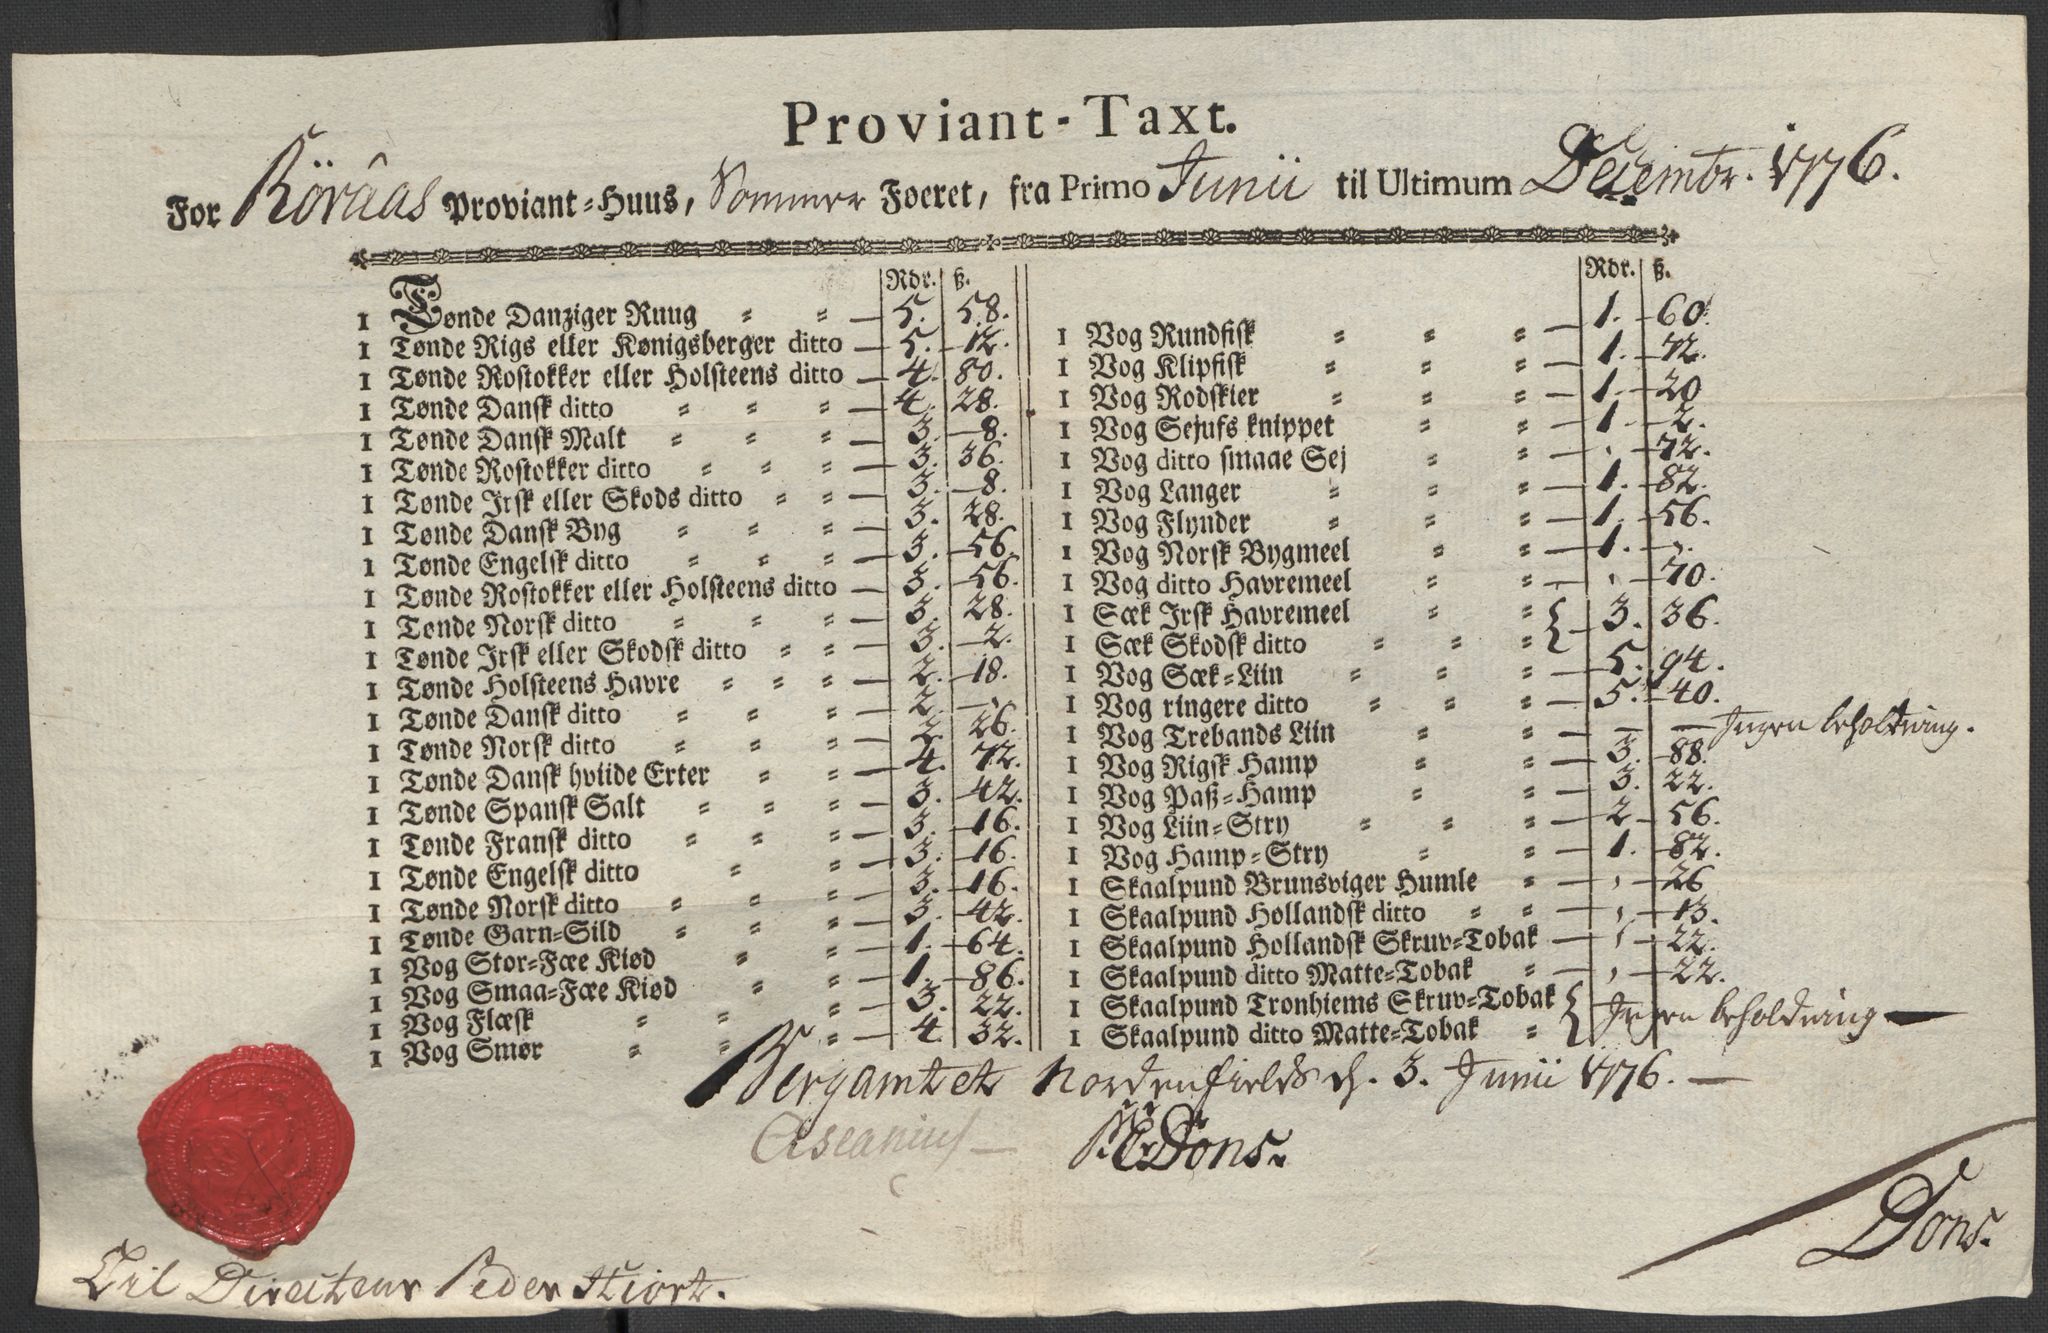 Proviant-Taxt.
For Röraas Proviant-Huus, Sommer Foeret, fra Primo Junii til Ultimum Decembr. 1776.
Rdr. ß.
1 Tønde Danziger Ruug 5. 58.
1 Tønde Rigs eller Kønigsberger ditto 5. 12.
1 Tønde Rostokker eller Holsteens ditto 4. 80.
1 Tønde Dansk ditto 4. 28.
1 Tønde Dansk Malt 3. 8.
1 Tønde Rostokker ditto 3. 36.
1 Tønde Irsk eller Skods ditto 3. 8.
1 Tønde Dansk Byg 3. 28.
1 Tønde Engelsk ditto 3. 56.
1 Tønde Rostokker eller Holsteens ditto 3. 56.
1 Tønde Norsk ditto 3. 28.
1 Tønde Irsk eller Skodsk ditto 3. 2.
1 Tønde Holsteens Havre 2. 18.
1 Tønde Dansk ditto 2. -
1 Tønde Norsk ditto 2 26.
1 Tønde Dansk hviide Erter 4. 72.
1 Tønde Spansk Salt 3. 42.
1 Tønde Fransk ditto 3. 16.
1 Tønde Engelsk ditto 3. 16.
1 Tønde Norsk ditto 3. 16.
1 Tønde Garn-Sild 3. 42.
1 Vog Stor-Fæe Kiød 1. 64.
1 Vog Smaa-Fæe Kiød 1. 86.
1 Vog Flæsk 3. 22.
1 Vog Smør 4. 32.
Rdr. ß.
1 Vog Rundfisk 1. 60.
1 Vog Klipfisk 1. 72.
1 Vog Rodskier 1. 20
1 Vog Sejufs knippet 1. 2.
1 Vog ditto smaae Sej , 72.
1 Vog Langer 1. 82.
1 Vog Flynder 1. 56.
1 Vog Norsk Bygmeel 1. -
1 Vog ditto Havremeel , 70.
1 Sæk Irsk Havremeel { 3. 36.
1 Sæk Skodsk ditto
1 Vog Sæk-Liin 5. 94.
1 Vog ringere ditto 5. 40.
1 Vog Trebands Liin — — Ingen beholdning.
1 Vog Rigsk Hamp 3. 88.
1 Vog Paß-Hamp 3. 22.
1 Vog Liin-Stry 2 56.
1 Vog Hamp-Stry 1. 82.
1 Skaalpund Brunsviger Humle , 26
1 Skaalpund Hollandsk ditto , 13.
1 Skaalpund Hollandsk Skruv-Tobak , 22.
1 Skaalpund ditto Matte-Tobak , 22.
1 Skaalpund Tronhiems Skruv-Tobak { Ingen beholdning —
1 Skaalpund ditto Matte-Tobak
Bergamtet Nordenfields d. 3. Junii 1776. —
Ascanius —
Dons.
Dons.
Til Directeur Peder Hiort.